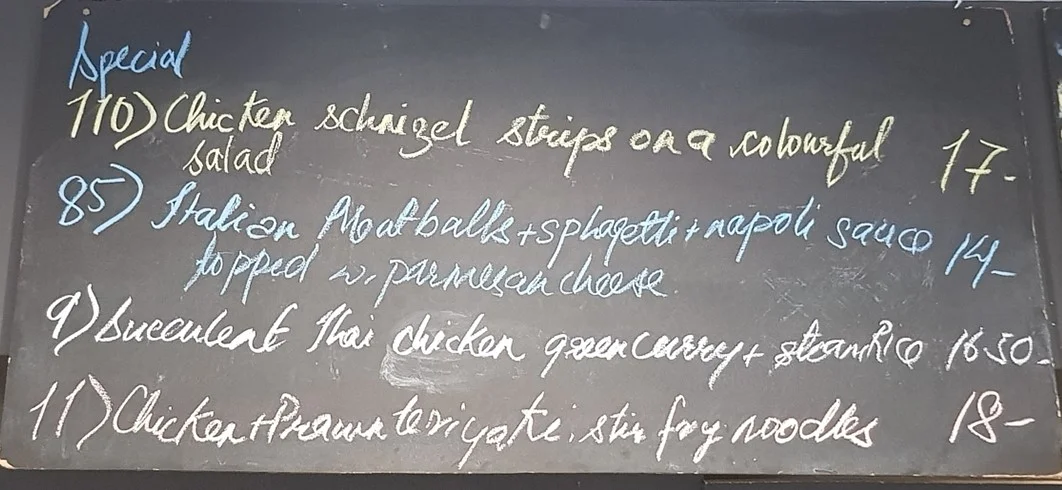 Special
110) Chicken schnizel strips on a colourful 17-
salad
85) Italian Meatballs + sphagetti + napoli sauce 14-
topped w. parmesan cheese.
9) Succulent Thai chicken green curry + steam Rice 1650-
11) Chicken + Prawn teriyaki. stir fry noodles 18-